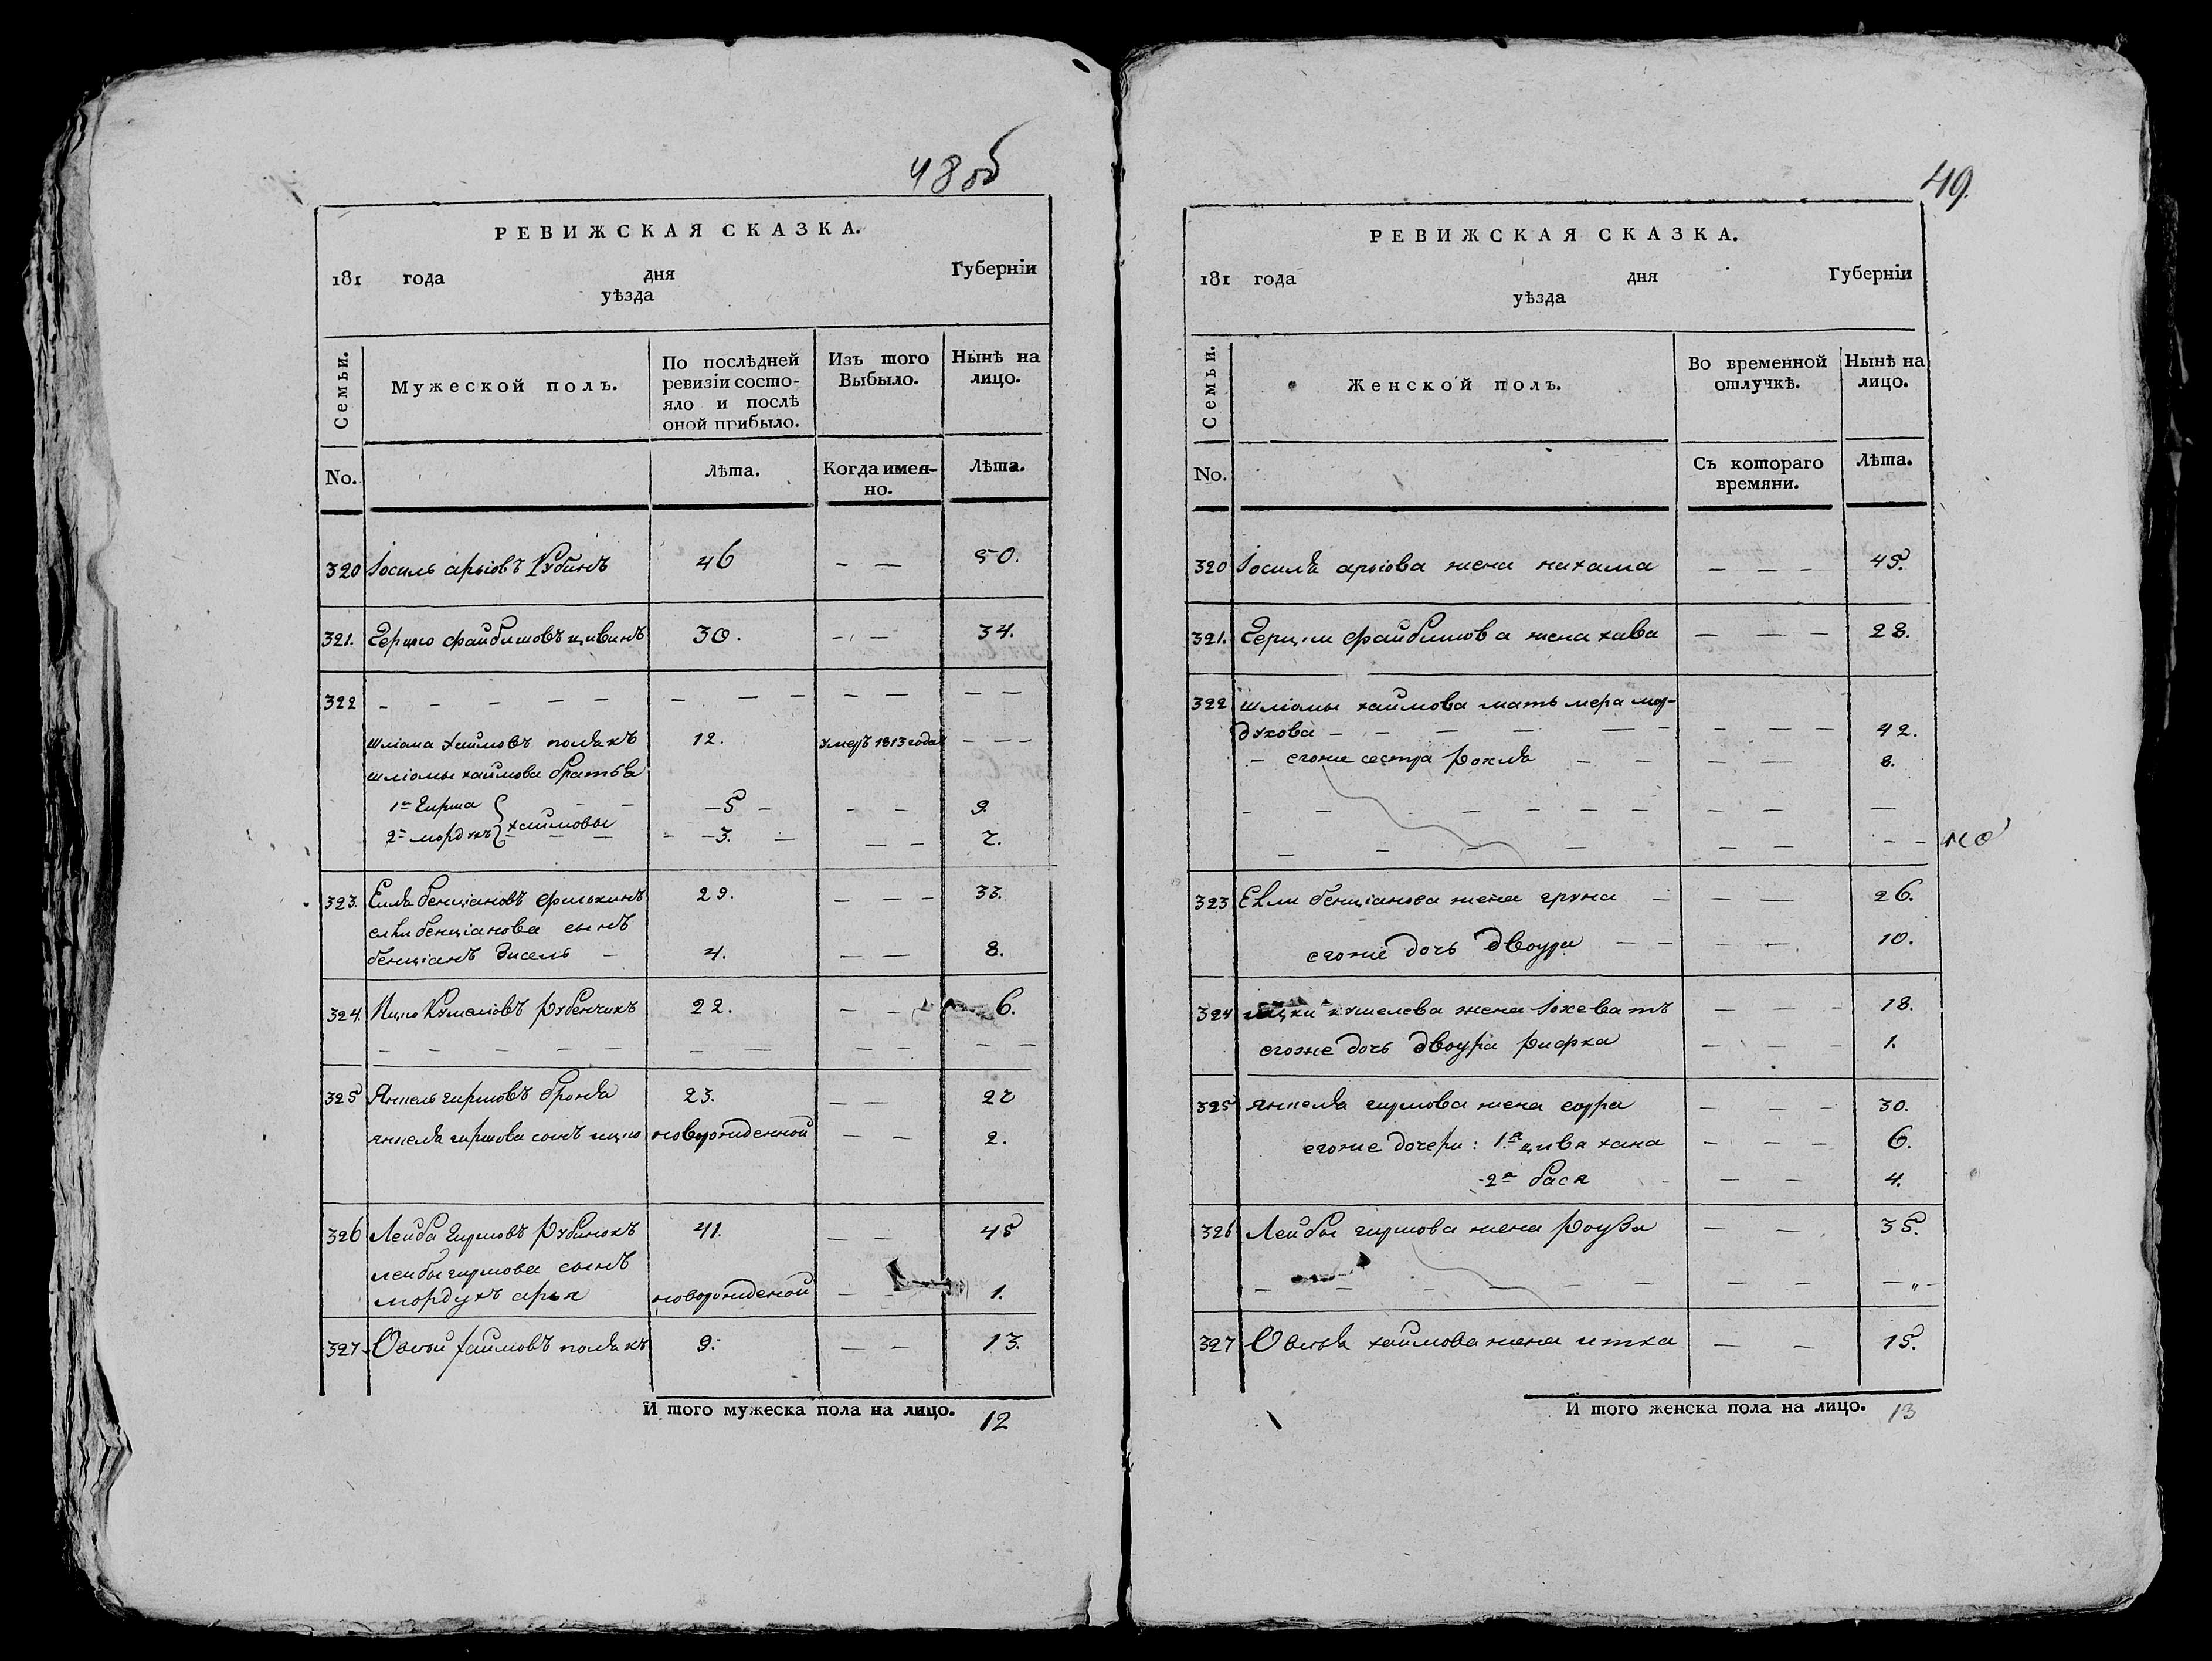 48 об
РЕВИЖСКАЯ СКАЗКА.
181 года дня Губерніи
уѣзда
Семьи. Мужеской полъ. По послѣдней ревизіи состояло и послѣ оной прибыло. Изъ того Выбыло. Нынѣ на лицо.
No. Лѣта. Когда именно. Лѣта.
320 Іосиль аріовъ Рубинъ 46 — — 50.
321. Герцко файбишовъ цивинъ 30. — — 34.
322 — — — — — — — — — — — —
шліома хаимовъ полякъ 12. умеръ 1813 года — — —
шліомы хаимова братья
1й Гирша — — — 5 — — — 9.
2й мордухъ } хаимовы — — 3. — — — 7.
323. Еля бенціановъ 29. — — — 33.
ели бенціанова сынъ
бенціанъ Зисель — 4. — — 8.
324. Ицко Кушелювъ Рубенчикъ 22. — — 6.
— — — — — — — — — — —
325 Янкель гиршовъ броня 23. — — 27
янкеля гиршова сынъ ицко новорожденной — — 2.
326 Лейба Гиршовъ Рубинокъ 41. — — 45
лейбы гиршова сынъ
мордухъ арья новорожденой — — 1.
327. Овсей хаимовъ полякъ 9. — — 13.
И того мужеска пола на лицо. 12
49.
РЕВИЖСКАЯ СКАЗКА.
181 года дня Губерніи
уѣзда
Семьи. Женской полъ. Во временной отлучкѣ. Нынѣ на лицо.
No. Съ котораго времяни. Лѣта.
320 Іосиля аріова жена нихама — — — 45.
321. Герцки файбишова жена хава — — — 28.
322 шліомы хаимова мать мера мор-
духова — — — — — — — — — 42.
— егоже сестра рохля — — — — 8.
— — — — — — — — — —
— — — — — — — —
323 Ели бенціанова жена груна — — — 26.
егоже дочь двоура — — — — 10.
324 ицки кушелева жена Іохеватъ — — — 18.
егоже дочь двоура рифка — — — 1.
325 янкеля гиршова жена соура — — — 30.
егоже дочери: 1я цивя хана — — — 6.
2я бася — — 4.
326 Лейбы гиршова жена роуза — — 35.
— — — — — — — — —
327 Овсея хаимова жена итка — — 15.
И того женска пола на лицо. 13